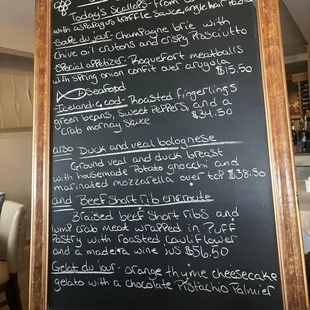 Today's Scallops - From
with asparagus truffle Sauce, angle hair
Sale du jour - champagne brie with
chive oil crutons and crispy Prasciutto
Special appetizer - Roquefort meatballs
with spring onion confit over arugula
$15.50
Seafood
Icelandic cod - Roasted fingerlings
green beans, sweet peppers and a
crab mornay sauce $34.50
also Duck and veal bolognese
Ground veal and duck breast
with housemade Potato gnocchi and
marinated mozzarella over top $38.50
and Beef short rib enroute
Braised beef short ribs and
lump crab meat wrapped in Puff
Pastry with roasted cauliflower
and a madeira wine jus $56.50
Gelat du jour - orange thyme cheesecake
gelato with a chocolate Pistachio Palmier